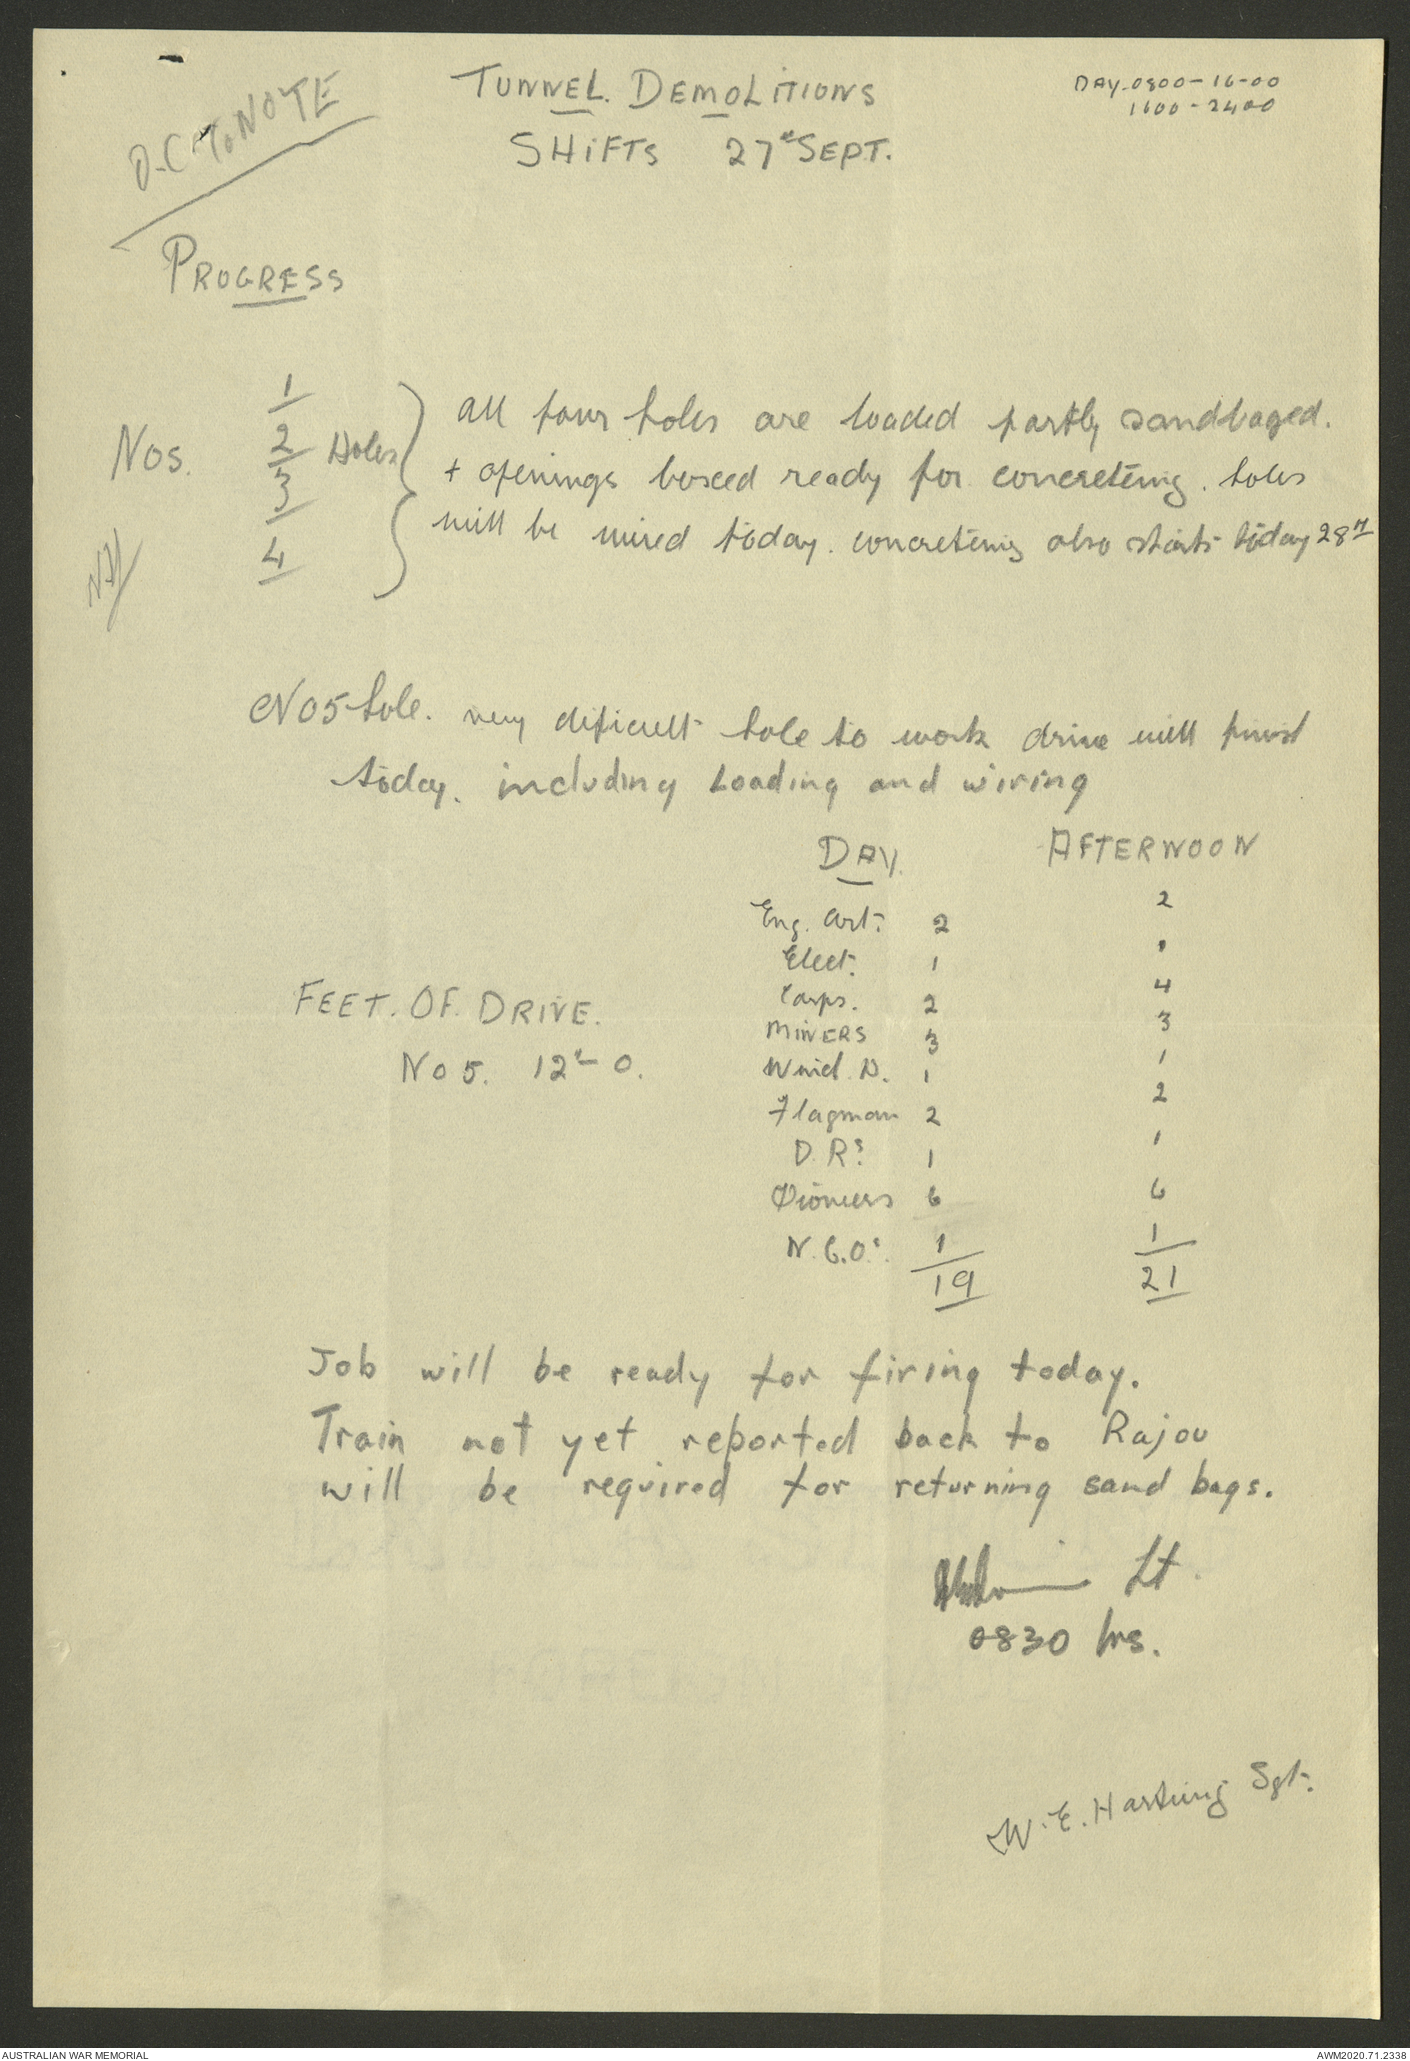 O.C. To NOTE
TUNNEL. DEMOLITIONS
SHIFTS 27th SEPT.
DAY-0800-16-00
1600-2400
PROGRESS
Nos. 1 2 3 4 Holes
All four holes are loaded partly sandbaged.
+ openings boxed ready for concreteing. holes
will be wired today. concreteing also starts today 28th
No 5 hole. very dificult hole to work drive will finish
today. including Loading and wiring
DAY. AFTERNOON
Eng. Art: 2 2
Elect. 1 1
Carps. 2 4
MINERS 3 3
Wind. D. 1 1
Flagman 2 2
D. Rs. 1 1
Pioneers 6 6
N.C.O's. 1 1
19 21
FEET. OF. DRIVE.
No 5. 12'-0.
Job will be ready for firing today.
Train not yet reported back to Rajou
will be required for returning sand bags.
Lt.
0830 hrs.
W. E. Hartwig Sgt.
AUSTRALIAN WAR MEMORIAL
AWM2020.71.2338